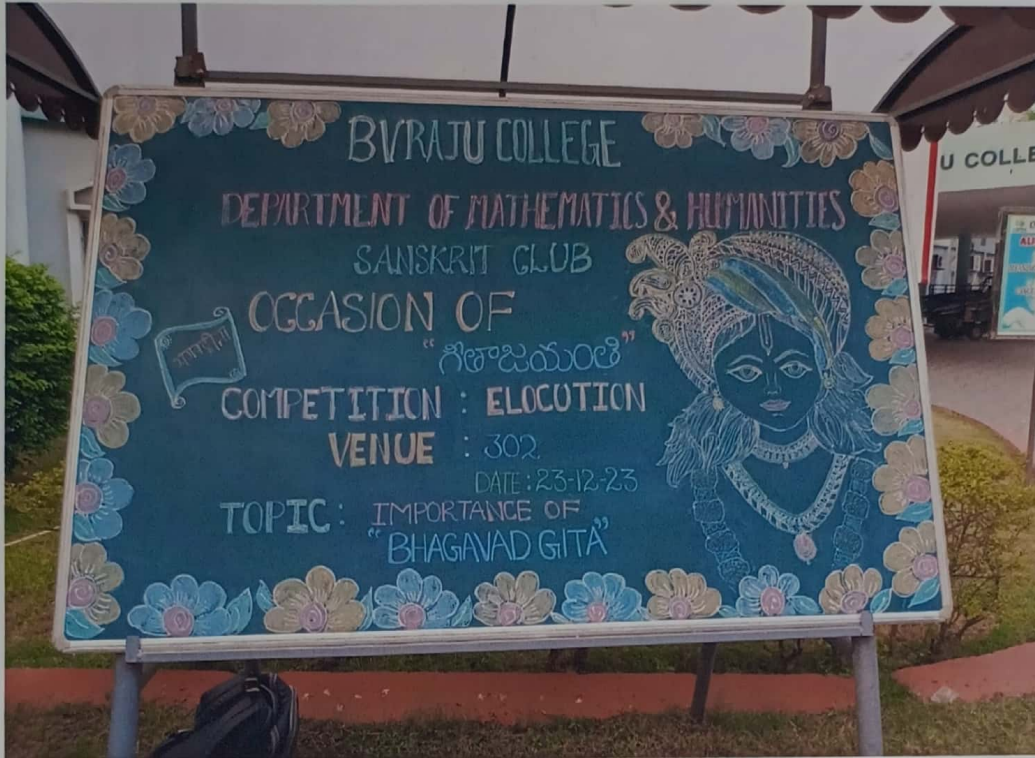 BVRAJU COLLEGE
DEPARTMENT OF MATHEMATICS & HUMANITIES
SANSKRIT CLUB
OCCASION OF
"గీతాజయంతి"
COMPETITION : ELOCUTION
VENUE : 302
DATE : 23-12-23
TOPIC : IMPORTANCE OF
"BHAGAVAD GITA"
U COLLE